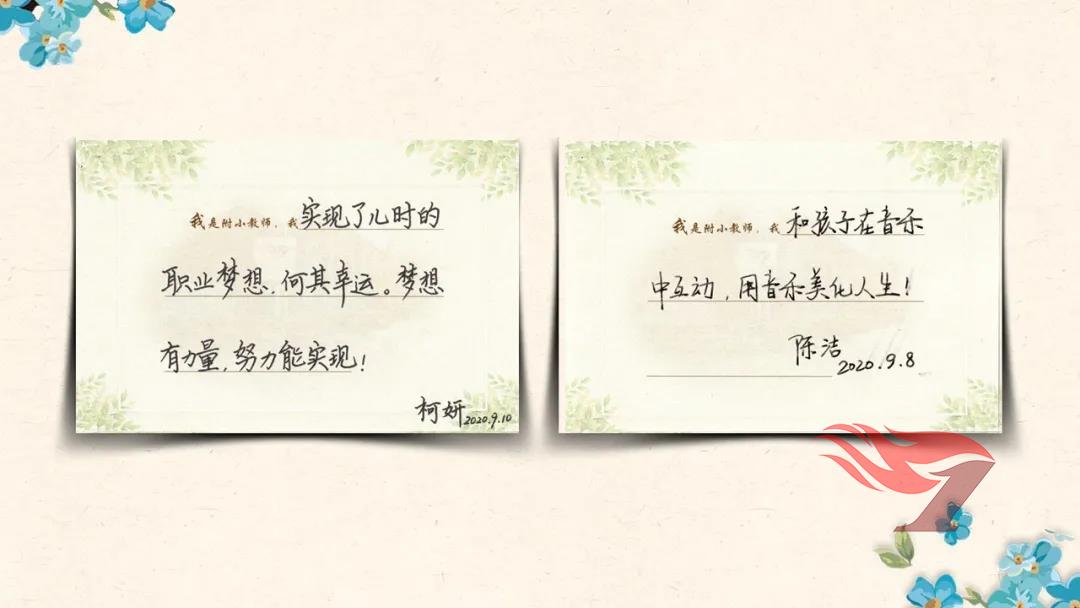 我是附小教师，我实现了儿时的
职业梦想，何其幸运。梦想
有力量，努力能实现！
柯妍 2020.9.10
我是附小教师，我和孩子在音乐
中互动，用音乐美化人生！
陈洁
2020.9.8